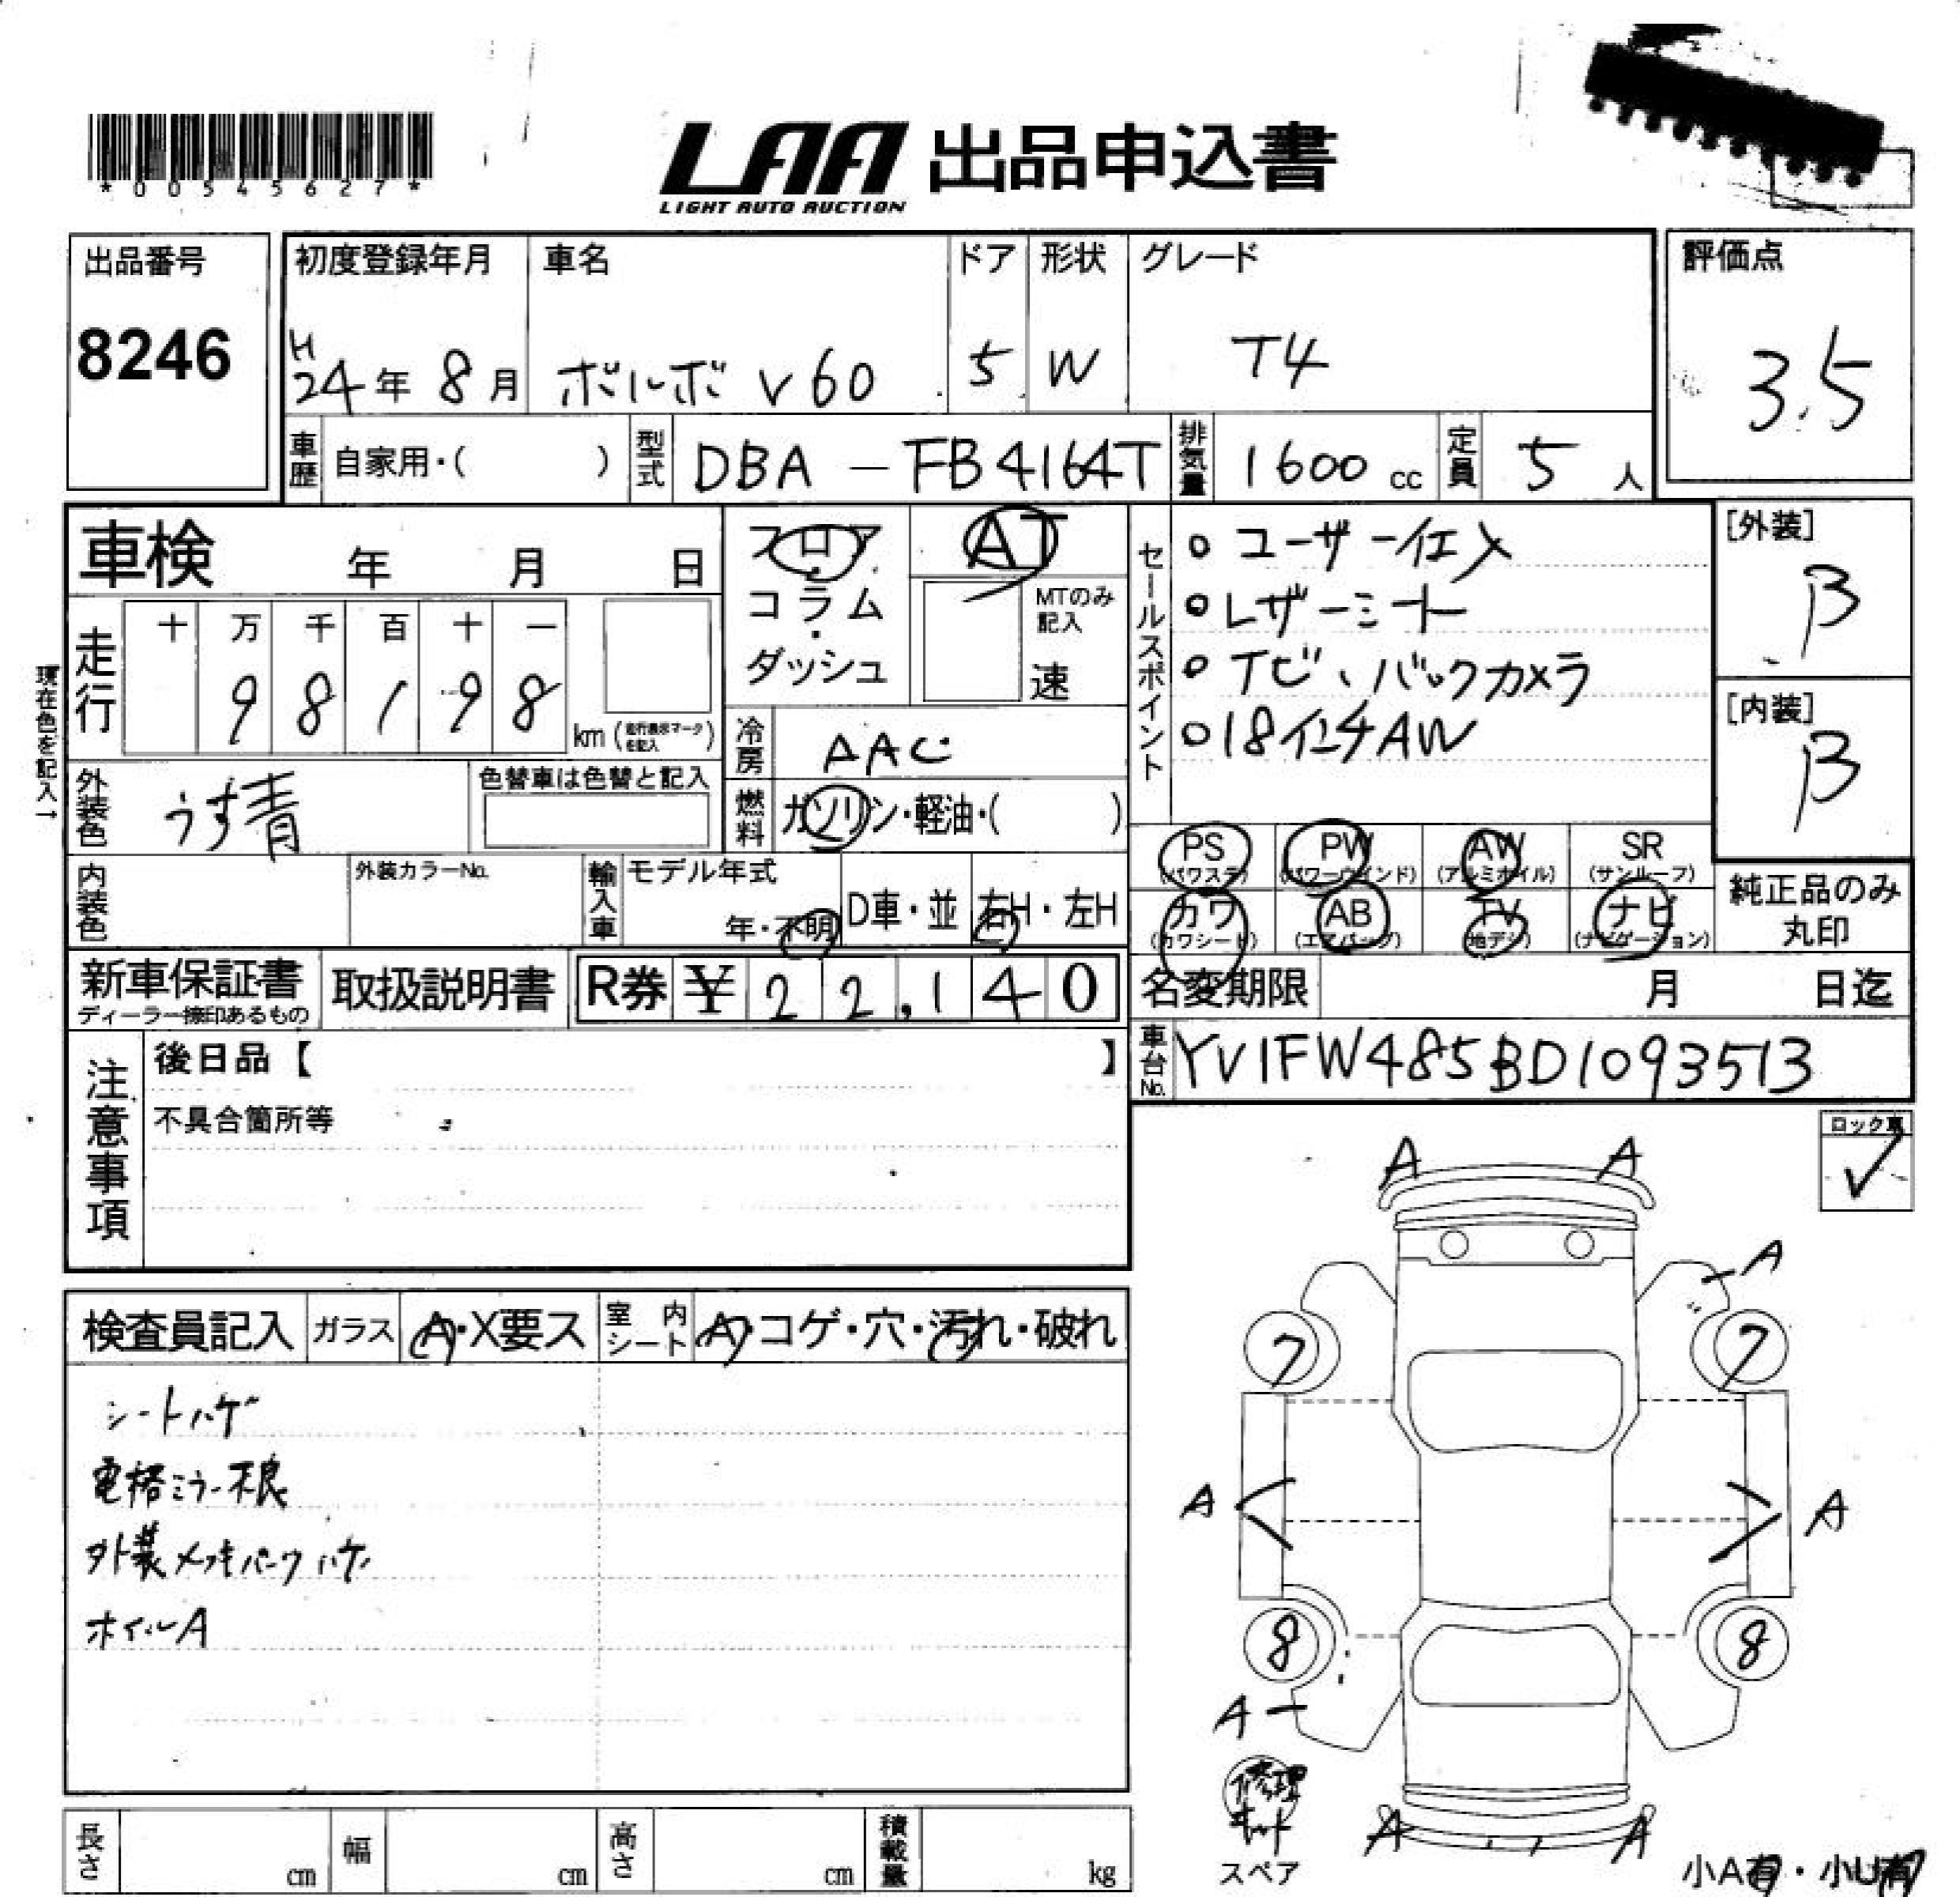 *00545627*
LAA 出品申込書
LIGHT AUTO AUCTION
出品番号
8246
初度登録年月
H
24年 8月
車名
ボルボ V60
ドア
5
形状
W
グレード
T4
評価点
3.5
車歴 自家用・( )
型式 DBA-FB4164T
排気量 1600 cc
定員 5 人
車検 年 月 日
フロア
コラム
・
ダッシュ
AT
MTのみ
記入
速
セールスポイント
○ ユーザー仕入
○ レザーシート
○ Tビバックカメラ
○ 18インチAW
[外装]
B
[内装]
B
現在色を記入→
走行
十 万 千 百 十 一
9 8 1 9 8
km (走行表示マークを記入)
冷房 AAC
外装色 うす青
色替車は色替と記入
燃料 ガソリン・軽油・( )
PS
(パワステ)
PW
(パワーウインド)
AW
(アルミホイル)
SR
(サンルーフ)
カワ
(カワシート)
AB
(エアバッグ)
TV
(地デジ)
ナビ
(ナビゲーション)
純正品のみ
丸印
内装色
外装カラーNo.
輸入車
モデル年式
年・不明
D車・並
右H・左H
新車保証書
ディーラー捺印あるもの
取扱説明書
R券 ¥ 22,140
名変期限 月 日迄
車台No. YV1FW485BD1093513
注意事項
後日品【 】
不具合箇所等
ロック車
✓
A A
A
7 7
A A
8 8
A
A A
検査員記入
ガラス A・X要ス
室内シート A・コゲ・穴・汚れ・破れ
シートハゲ
電格ミラー不良
外装メッキパーツハゲ
ホイルA
修理
キット
スペア
小A有・小U有
長さ cm
幅 cm
高さ cm
積載量 kg